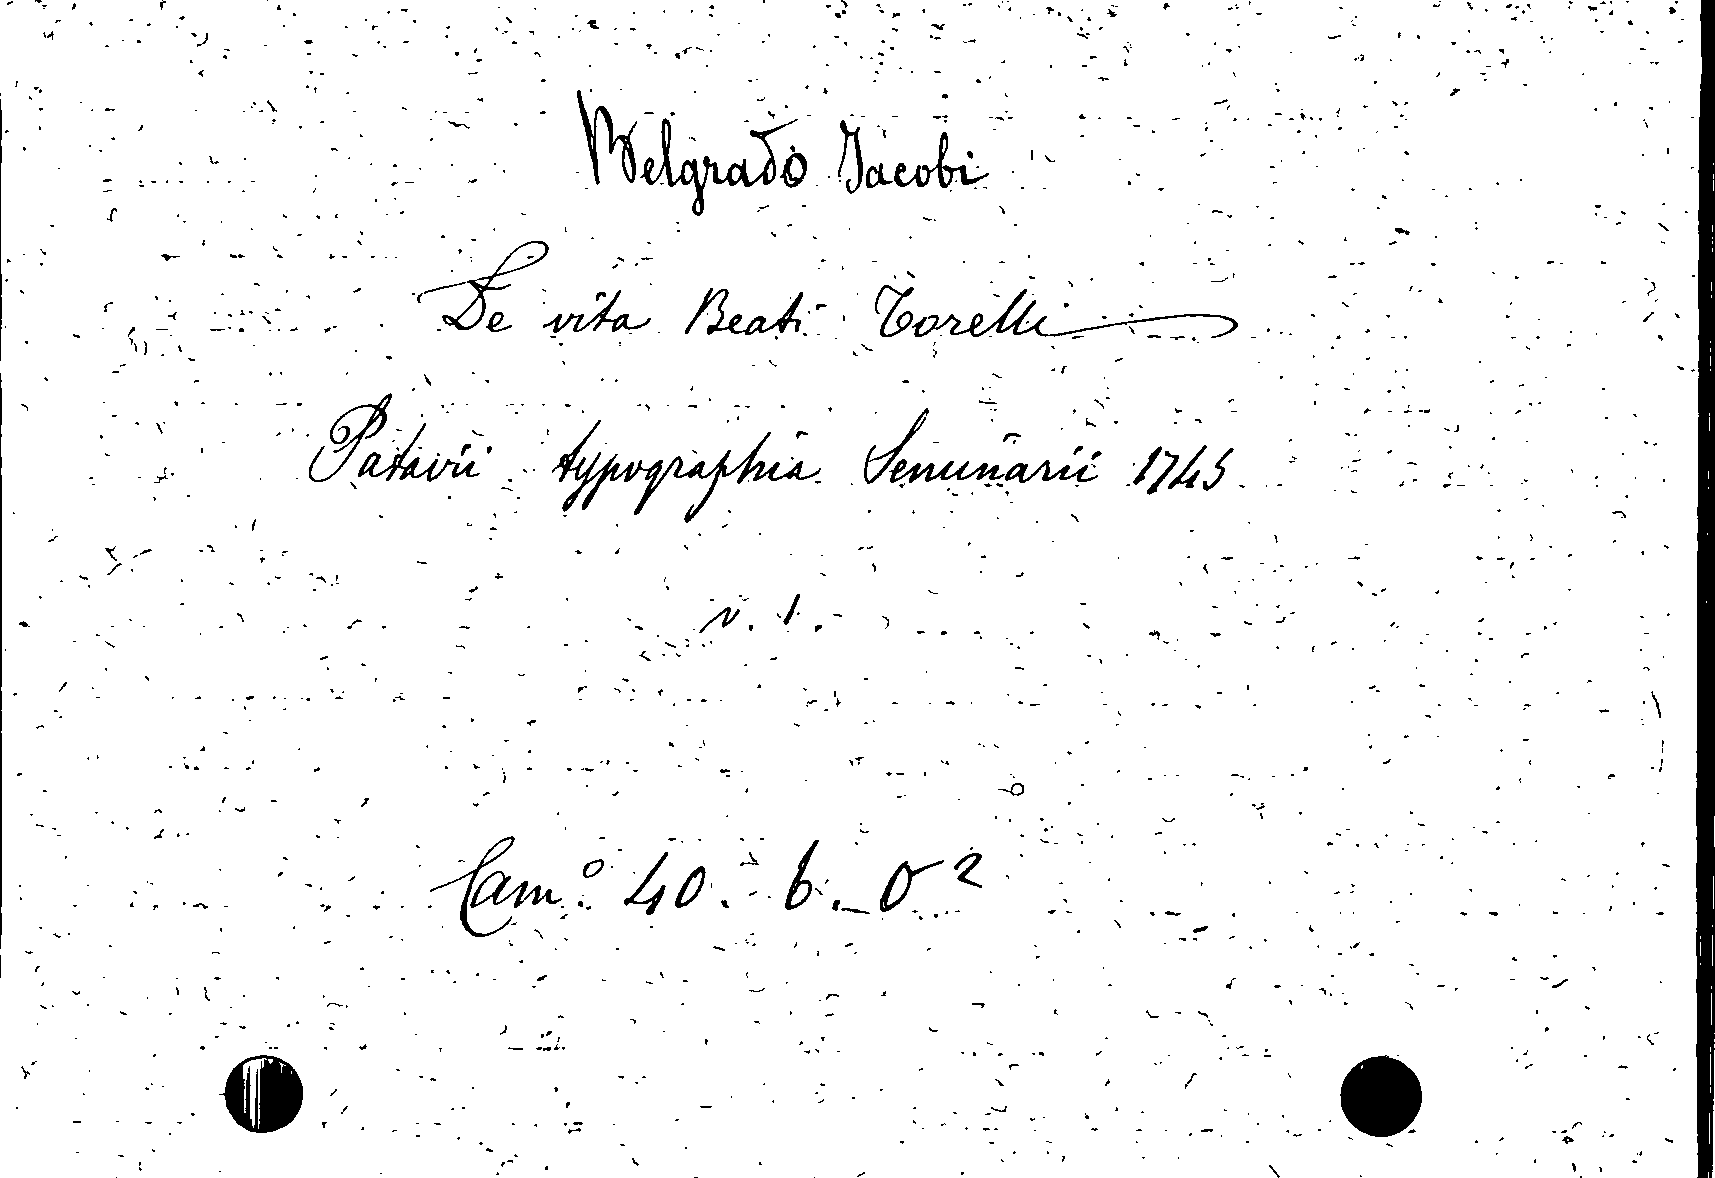 Belgrado Jacobi
De vita Beati Torelli
Patavii typographia Seminarii 1745
v. 1.
Cam.º 40. b. O²